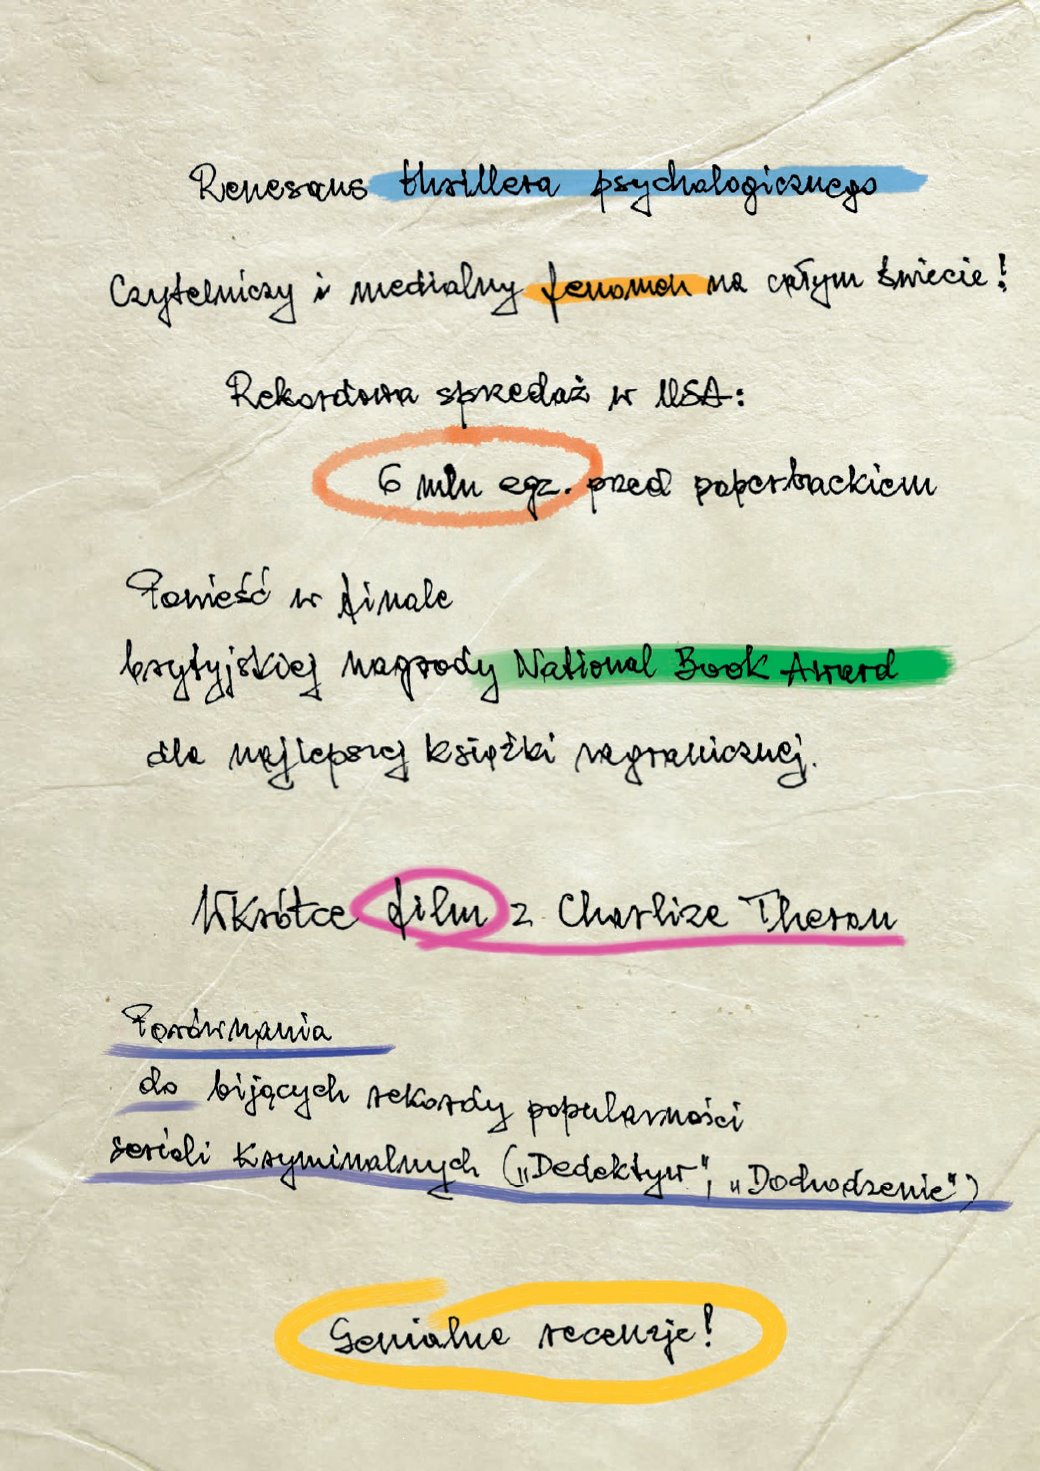 Renesans thrillera psychologicznego
Czytelniczy i medialny fenomen na całym świecie!
Rekordowa sprzedaż w USA:
6 mln egz. przed paperbackiem
Powieść w finale
brytyjskiej nagrody National Book Award
dla najlepszej książki zagranicznej.
Wkrótce film z Charlize Theron
Porównania
do bijących rekordy popularności
seriali kryminalnych („Dedektyw”, „Dochodzenie”)
Genialne recenzje!